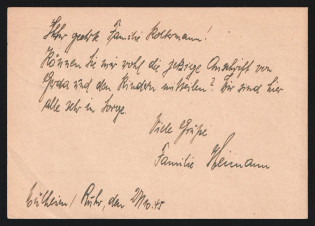 Sehr geehrte Familie Kollmann!
Können Sie mir wohl die jetzige Anschrift von
Greta und den Kindern mitteilen? Wir sind hier
alle sehr in Sorge.
Viele Grüße
Familie Heimann
Mülheim/Ruhr, den